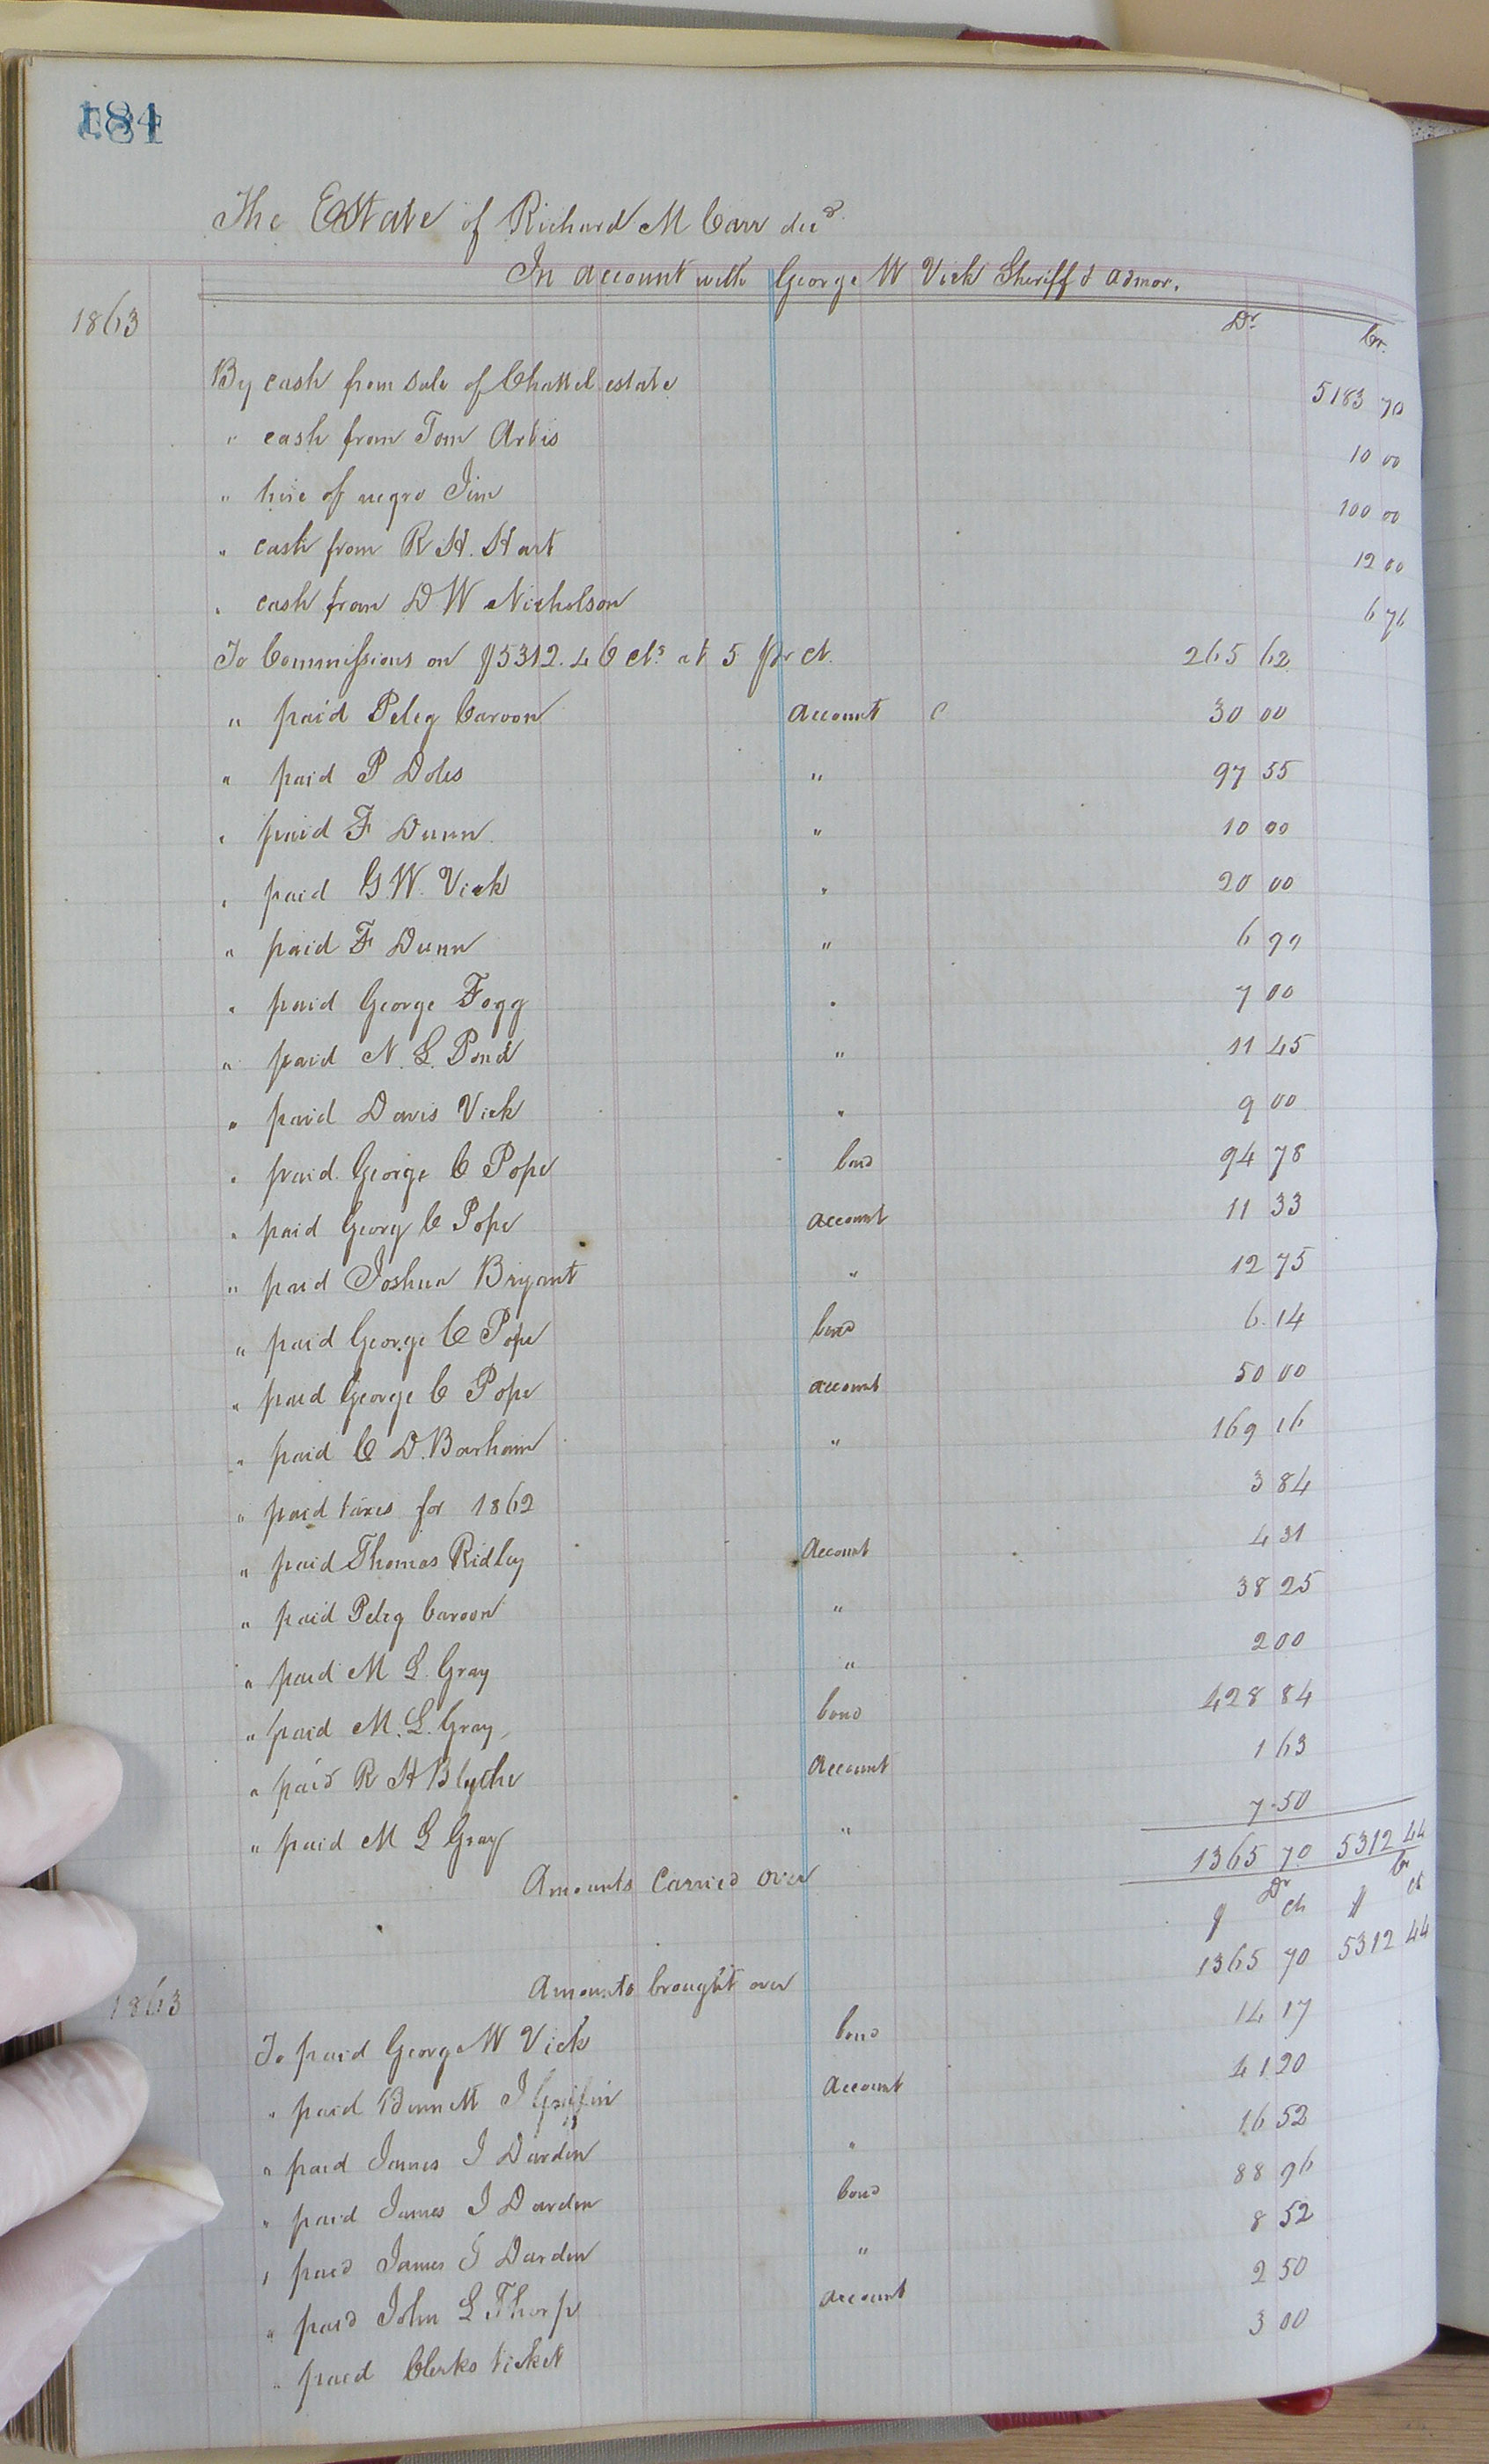 184
The Estate of Richard M Carr decd
In account with George W Vick Sheriff & admor.
1863 Dr. Cr.
By cash from sale of Chattel estate 5183 70
" cash from Tom Artis 10 00
" hire of negro Jim 100 00
" cash from R H. Hart 12 00
" cash from D W Nicholson 6 76
To Commissions on $5312.46 cts at 5 pr ct. 265 62
" paid Peleg Caroon account 30 00
" paid P Doles " 97 55
" paid F Dunn " 10 00
" paid G.W. Vick " 20 00
" paid F Dunn " 6 99
" paid George Fogg " 7 00
" paid N. L. Pond " 11 45
" paid Davis Vick " 9 00
" paid George C Pope bond 94 78
" paid Georg C Pope account 11 33
" paid Joshua Bryant " 12 75
" paid George C Pope bond 6.14
" paid George C Pope account 50 00
" paid C D. Barham " 169 16
" paid taxes for 1862 3 84
" paid Thomas Ridley Account 4 31
" paid Peleg Caroon " 38 25
" paid M L. Gray " 2 00
" paid M. L. Gray bond 428 84
" paid R H Blythe Account 1 63
" paid M L Gray " 7.50
Amounts Carried over 1365 70 5312 44
Dr Cr
$ cts $ ct
1863 Amounts brought over 1365 70 5312 44
To paid George W Vick bond 14 17
" paid Bennett J Griffin Account 41 20
" paid James J Darden " 16 52
" paid James J Darden bond 88 96
" paid James J Darden " 8 52
" paid John L Thorp account 2 50
" paid Clerks ticket 3 00